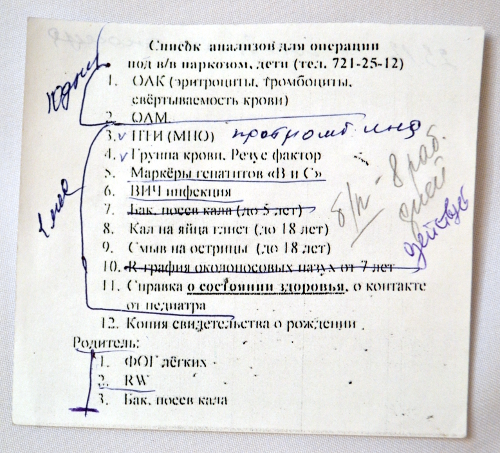 Список анализов для операции
под в/в наркозом, дети (тел. 721-25-12)
1. ОАК (эритроциты, тромбоциты,
свёртываемость крови)
2. ОАМ
3. ПТИ (МНО) протромб. инд
4. Группа крови, Резус фактор
5. Маркёры гепатитов «В и С»
6. ВИЧ инфекция
7. Бак. посев кала (до 5 лет)
8. Кал на яйца глист (до 18 лет)
9. Смыв на острицы (до 18 лет)
10. R-графия околоносовых пазух от 7 лет
11. Справка о состоянии здоровья, о контакте
от педиатра
12. Копия свидетельства о рождении
Родитель:
1. ФОГ лёгких
2. RW
3. Бак. посев кала
10 дней
1 мес
б/п - 8 раб.
дней
действ